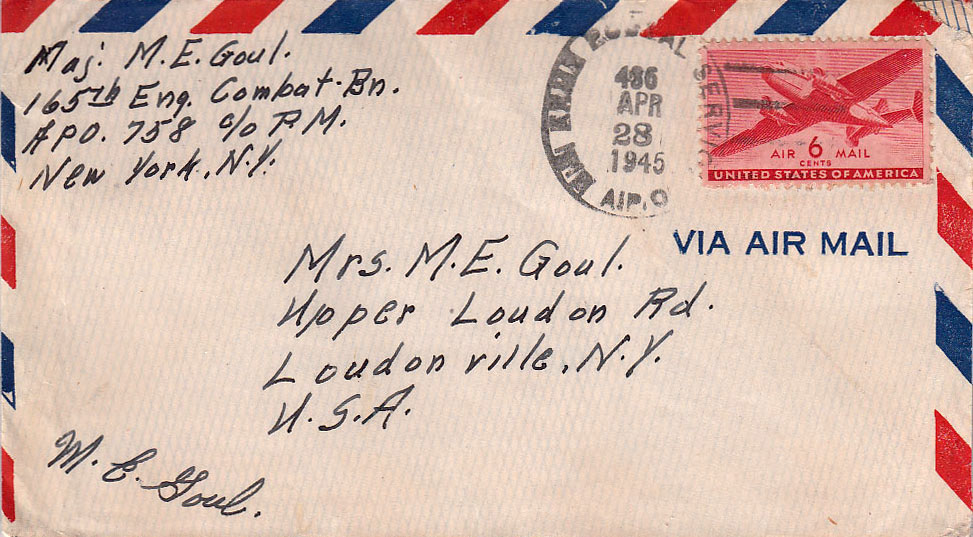 Maj. M.E. Goul.
165th Eng. Combat Bn.
APO. 758 c/o P.M.
New York, N.Y.
POSTAL SERVICE
486
APR
28
1945
A.P.O.
AIR 6 MAIL
CENTS
UNITED STATES OF AMERICA
VIA AIR MAIL
Mrs. M.E. Goul.
Upper Loudon Rd.
Loudonville, N.Y.
U.S.A.
M. E. Goul.